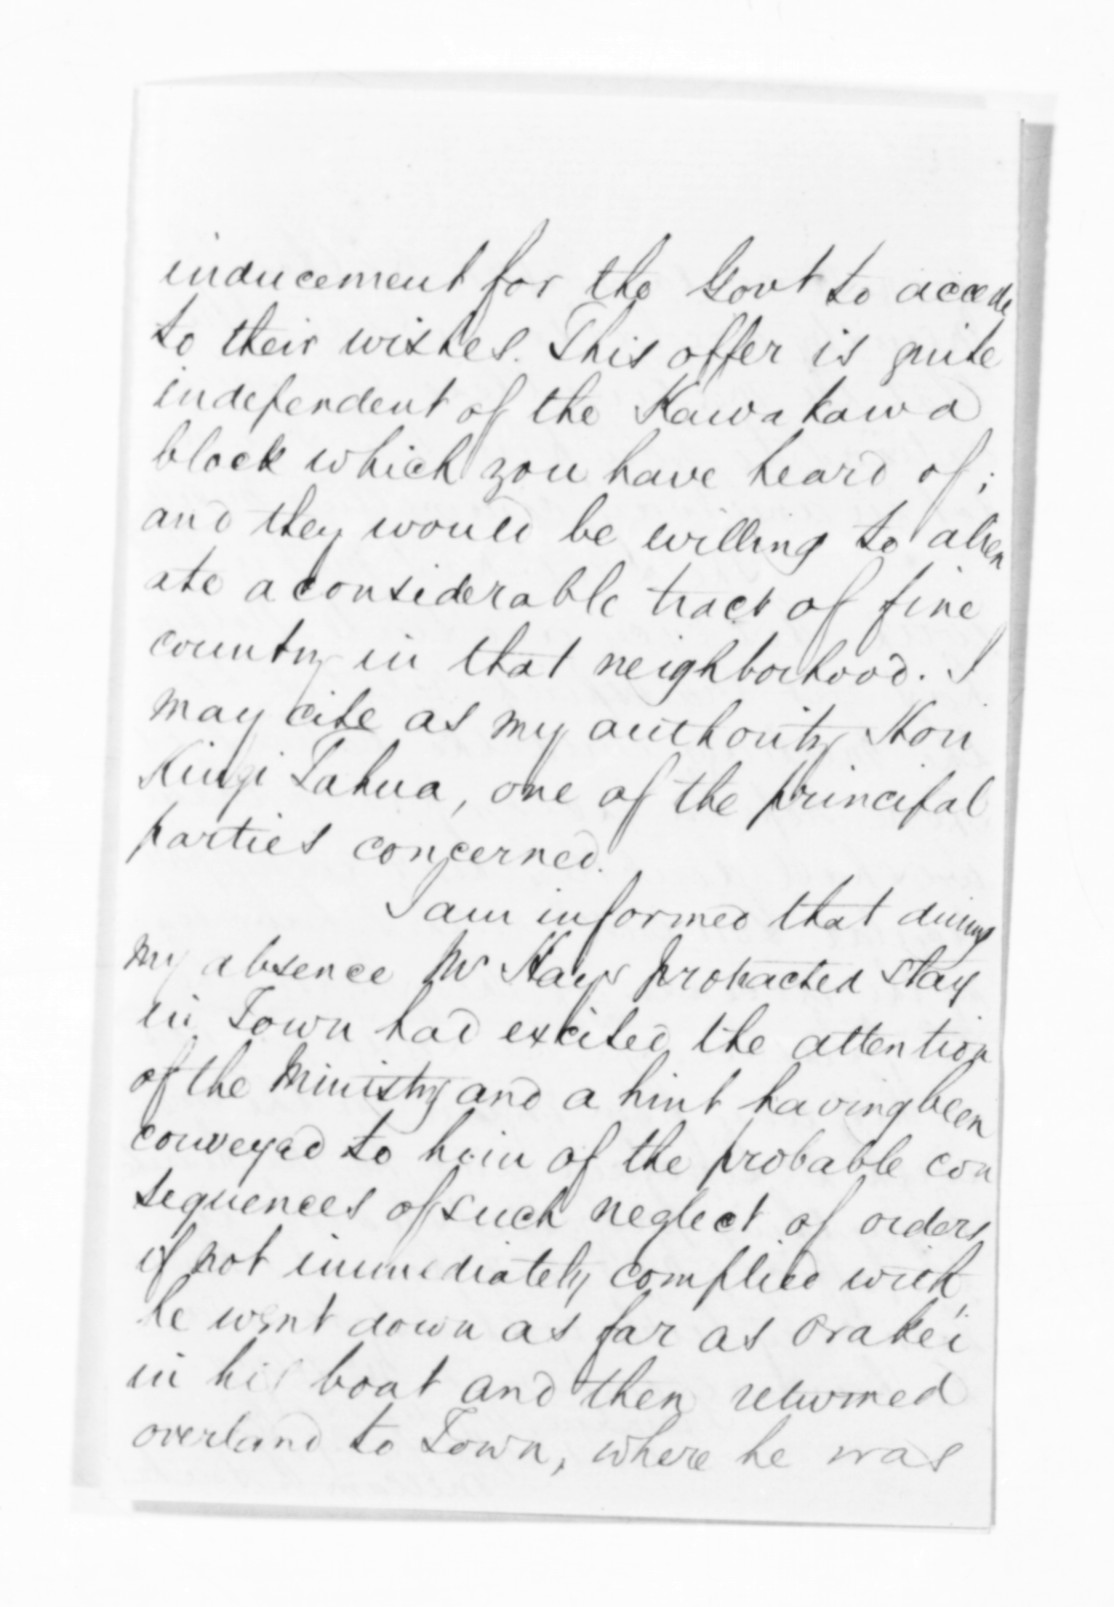 inducement for the Govt to accede
to their wishes. This offer is quite
independent of the Kawakawa
block which you have heard of;
and they would be willing to alien
ate a considerable tract of fine
country in that neighborhood. I
may cite as my authority Hori
Kingi Tahua, one of the principal
parties concerned.
I am informed that during
my absence Mr Hay's protracted stay
in Town had excited the attention
of the Ministry and a hint having been
conveyed to him of the probable con
sequences of such neglect of orders
if not immediately complied with,
he went down as far as Orakei
in his boat and then returned
overland to Town, where he was